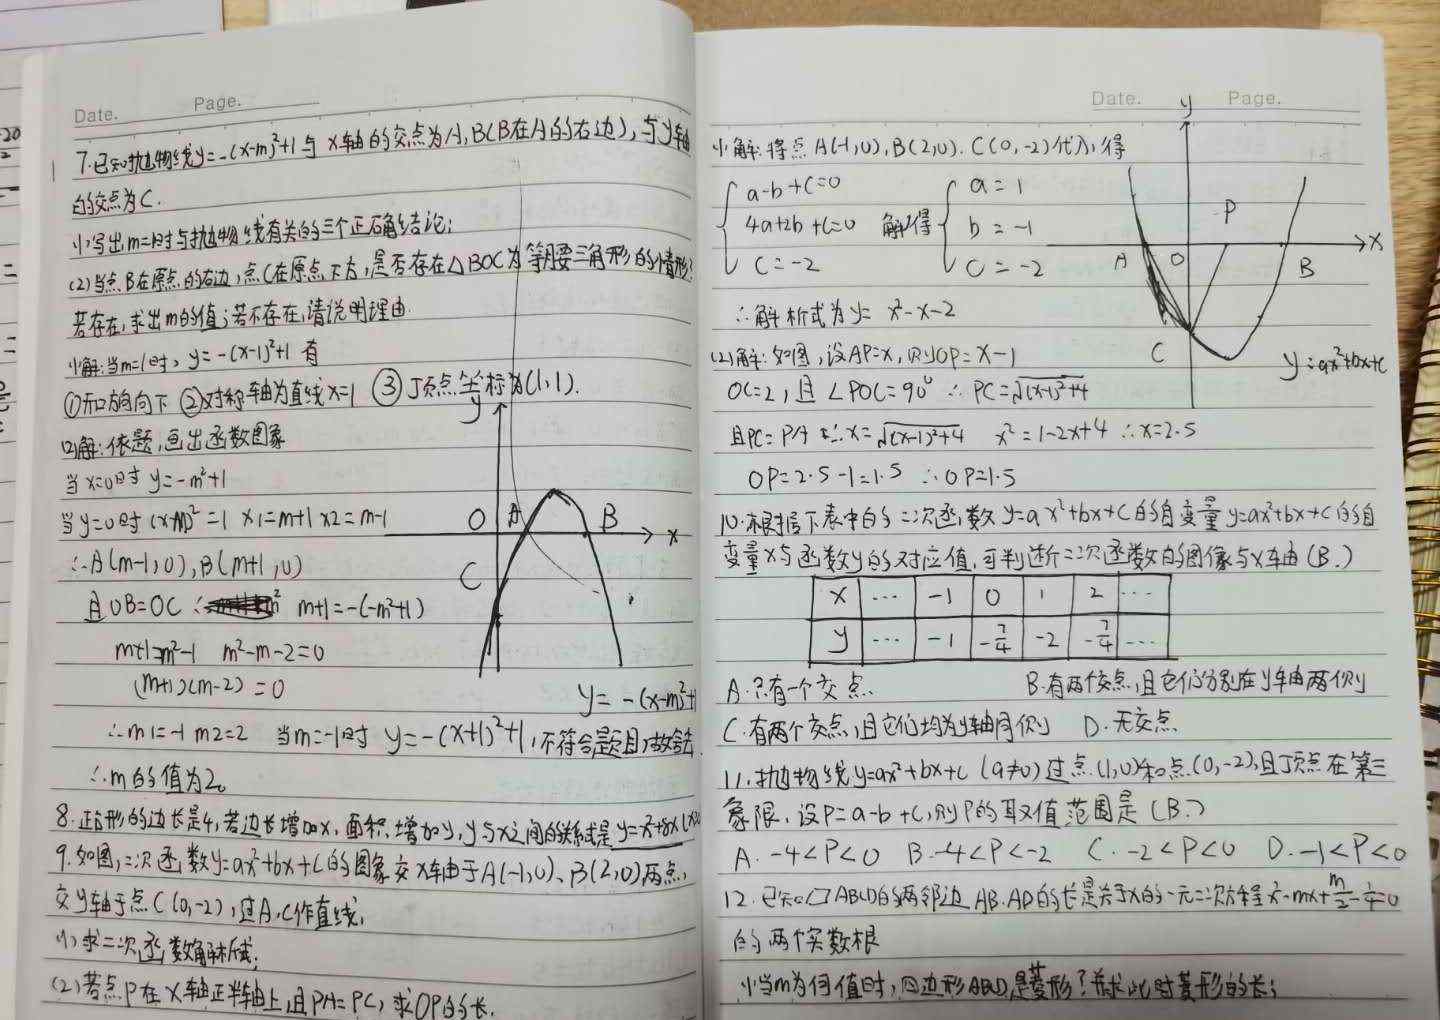 Date. Page.
7.已知抛物线y=-(x-m)²+1与x轴的交点为A,B(B在A的右边),与y轴
的交点为C.
(1)写出m=1时与抛物线有关的三个正确结论;
(2)当点B在原点的右边,点C在原点下方,是否存在△BOC为等腰三角形的情形?
若存在,求出m的值;若不存在,请说明理由.
(1)解:当m=1时,y=-(x-1)²+1 有
①开口方向向下 ②对称轴为直线x=1 ③顶点坐标为(1,1).
(2)解:依题,画出函数图象
当x=0时 y=-m²+1
当y=0时 (x-m)²=1 x1=m+1 x2=m-1
∴A(m-1,0),B(m+1,0)
且OB=OC ∴ m+1=-(-m²+1)
m+1=m²-1 m²-m-2=0
(m+1)(m-2)=0
∴m1=-1 m2=2 当m=-1时 y=-(x+1)²+1,不符合题目,故舍去.
∴m的值为2。
y
O A B x
C
y=-(x-m)²+1
8.正方形的边长是4,若边长增加x,面积增加y,y与x之间的关系式是y=x²+8x
9.如图,二次函数y=ax²+bx+c的图象交x轴于A(-1,0)、B(2,0)两点,
交y轴于点C(0,-2),过A,C作直线,
(1)求二次函数解析式;
(2)若点P在x轴正半轴上,且PA=PC,求OP的长.
Date. Page.
(1)解:将点A(-1,0),B(2,0).C(0,-2)代入,得
a-b+c=0 a=1
4a+2b+c=0 解得 b=-1
c=-2 c=-2
∴解析式为y= x²-x-2
y
P
A O B x
C
y=ax²+bx+c
(2)解:如图,设AP=x,则OP=x-1
OC=2,且∠POC=90° ∴PC=√(x-1)²+4
且PC=PA ∴x=√(x-1)²+4 x²=1-2x+4 ∴x=2.5
OP=2.5-1=1.5 ∴OP=1.5
10.根据下表中的二次函数y=ax²+bx+c的自变量y=ax²+bx+c的自
变量x与函数y的对应值,可判断二次函数的图像与x轴(B.)
x … -1 0 1 2 …
y … -1 -7/4 -2 -7/4 …
A.只有一个交点. B.有两个交点,且它们分别在y轴两侧
C.有两个交点,且它们均为y轴同侧 D.无交点
11.抛物线y=ax²+bx+c(a≠0)过点(1,0)和点(0,-2),且顶点在第三
象限,设P=a-b+c,则P的取值范围是(B.)
A.-4<P<0 B.-4<P<-2 C.-2<P<0 D.-1<P<0
12.已知▱ABCD的两邻边AB.AD的长是关于x的一元二次方程x²-mx+m/2-1/4=0
的两个实数根
(1)当m为何值时,四边形ABCD是菱形?并求此时菱形的长;